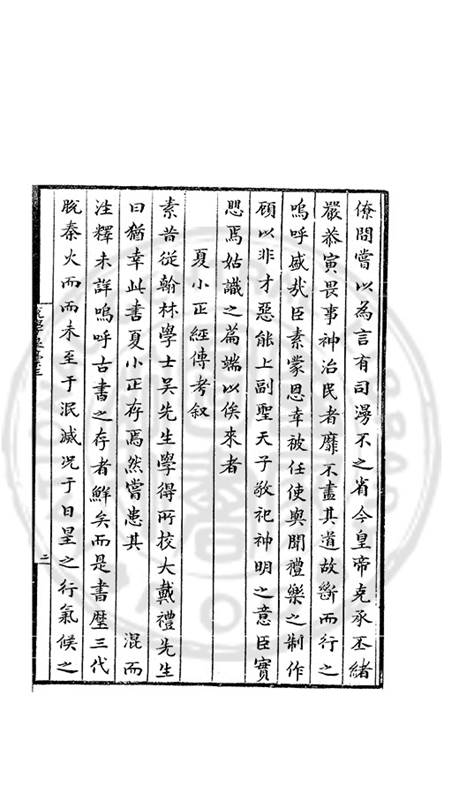 僚間嘗以為言有司漫不之省今皇帝克承丕緒
嚴恭寅畏事神治民者靡不盡其道故斷而行之
嗚呼盛哉臣素蒙恩幸被任使與聞禮樂之制作
顧以非才惡能上副聖天子敬祀神明之意臣實
愳焉姑識之篇端以俟來者
夏小正經傳考叙
素昔從翰林學士吳先生學得所校大戴禮先生
曰猶幸此書夏小正存焉然嘗患其 混而
注釋未詳嗚呼古書之存者鮮矣而是書歷三代
脫秦火而而未至于泯滅况于日星之行氣候之
二